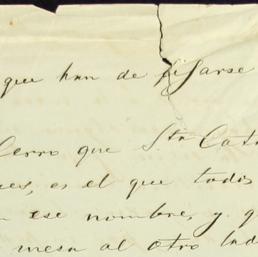 que han de fijarse
Cerro que Sta Cat
es, es el que todos
ese nombre, y q
mesa al otro lad